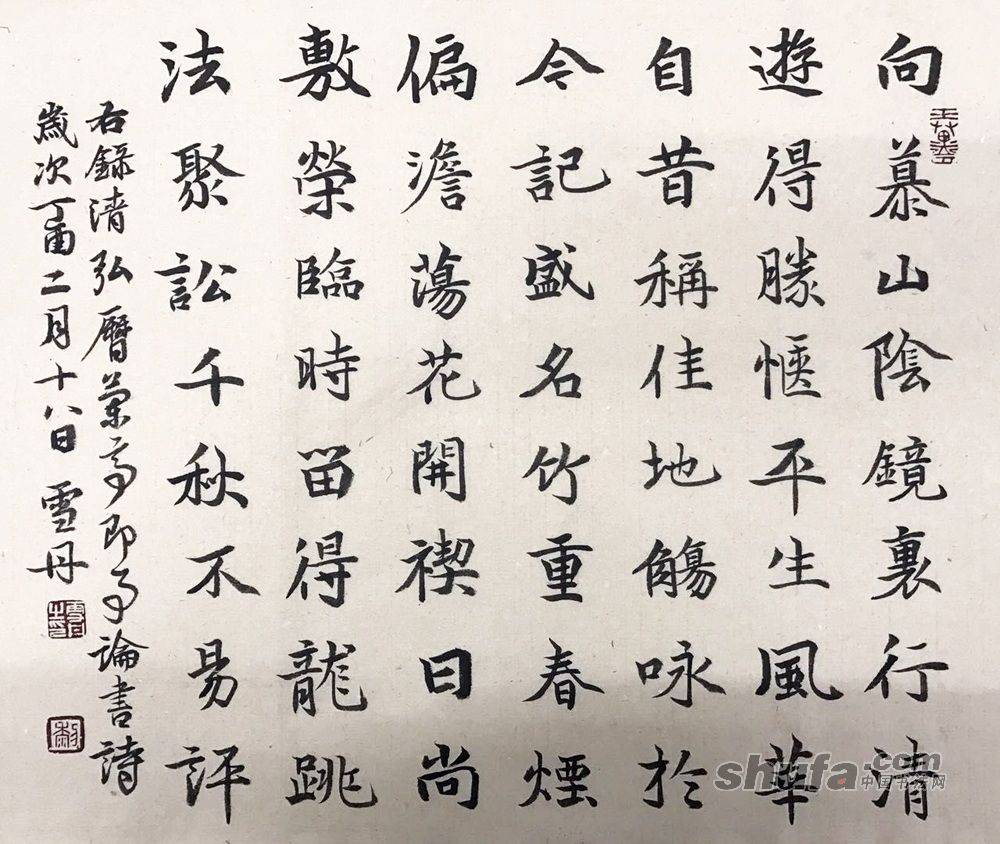 向慕山陰鏡裏行清
遊得勝愜平生風華
自昔稱佳地觴咏於
今記盛名竹重春煙
偏澹蕩花開禊日尚
敷榮臨時留得龍跳
法聚訟千秋不易評
右錄清弘曆蘭亭即事論書詩
歲次丁酉二月十八日 雪丹
shufa.com
中国书法网